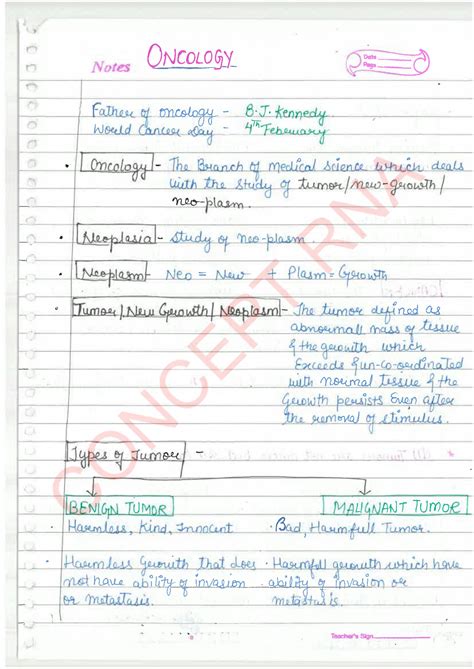 Notes ONCOLOGY
Date
Page
Father of oncology - B.J. Kennedy
World Cancer Day - 4th February
Oncology - The Branch of medical science which deals
with the study of tumor/new-growth/
neo-plasm.
Neoplasia - Study of neo-plasm.
Neoplasm - Neo = New + Plasm = Growth
Tumor/New Growth/Neoplasm - The tumor defined as
abnormall mass of tissue
& the growth which
Exceeds & un-co-ordinated
with normal tissue & the
Growth persists Even after
the removal of stimulus.
Types of Tumor -
BENIGN TUMOR MALIGNANT TUMOR
Harmless, Kind, Innocent • Bad, Harmfull Tumor.
• Harmless Growth that does • Harmful growth which have
not have ability of invasion ability of invasion or
or metastasis. metastasis.
Teacher's Sign
CONCEPT RNA